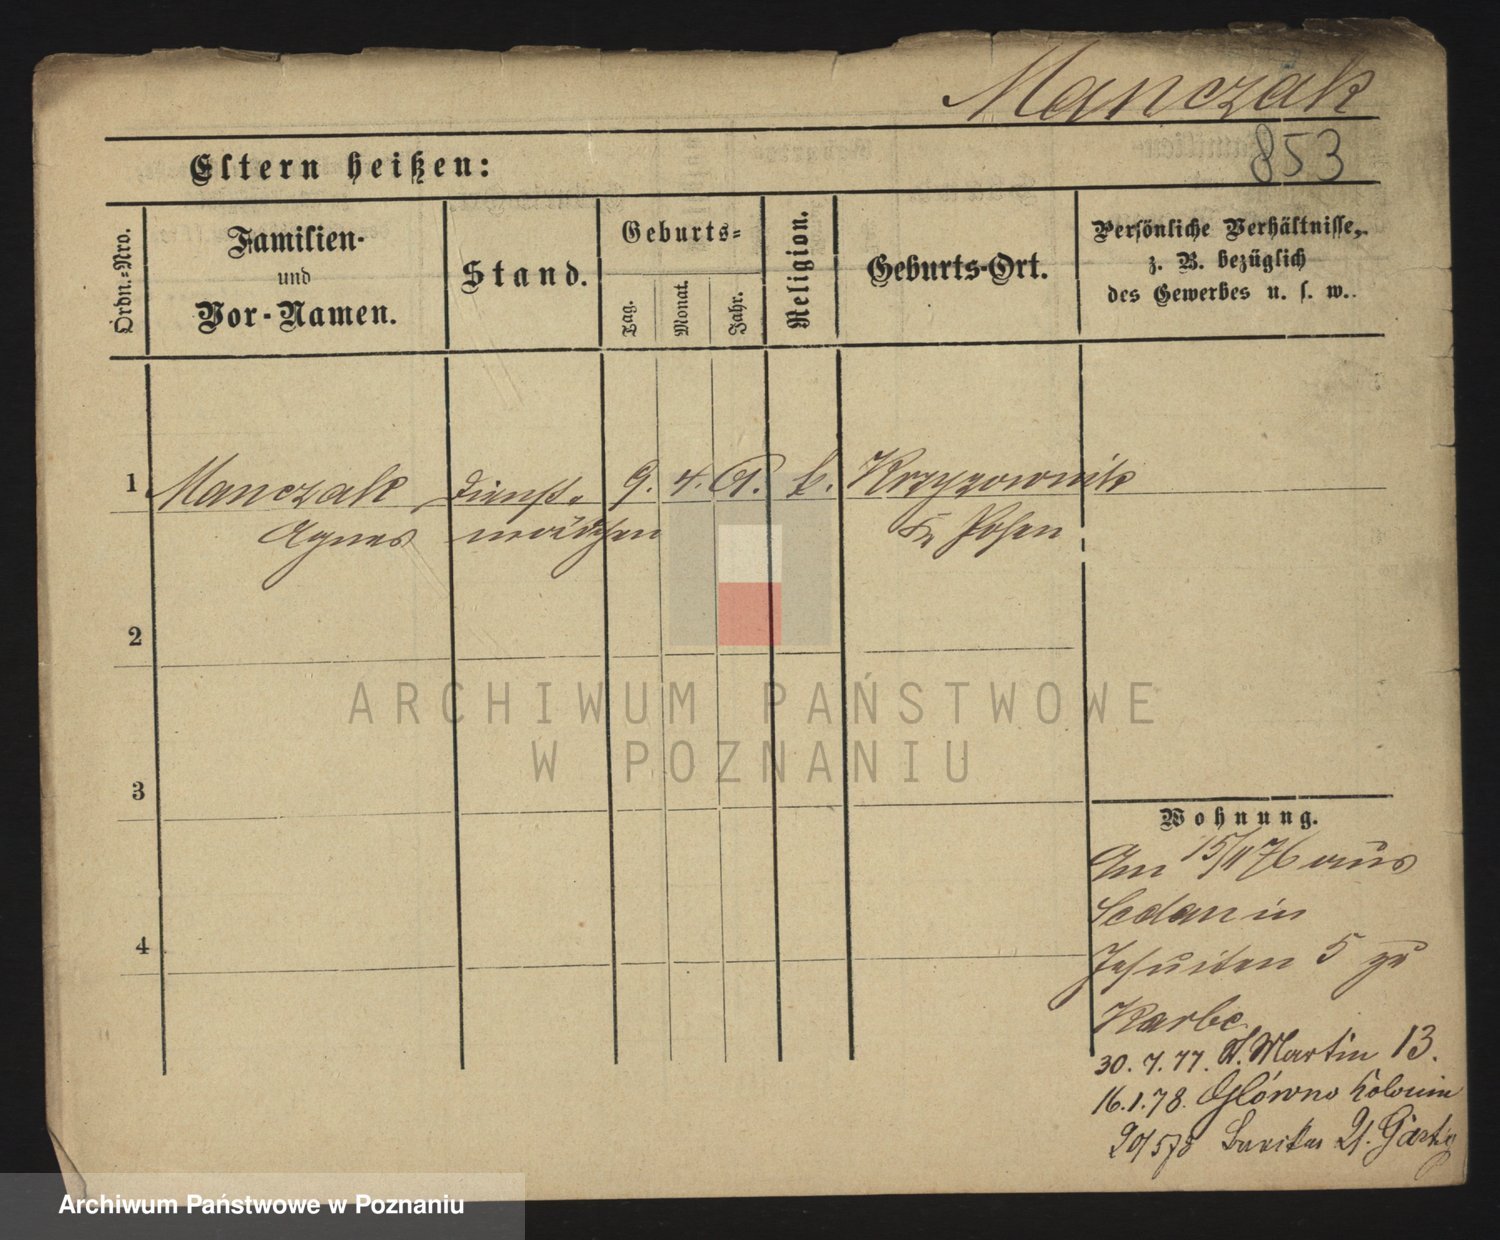 Manczak
853
Eltern heißen:
Ordn.-Nro.
Familien-
und
Vor-Namen.
Stand.
Geburts-
Tag.
Monat.
Jahr.
Religion.
Geburts-Ort.
Persönliche Verhältnisse,
z. B. bezüglich
des Gewerbes u. s. w.
1 Manczak Dienst- 9. 4. k. Krzyzownik
Agnes mädchen Kr. Posen
2
3
4
Wohnung.
Am 15/11 76 aus
Sedan in
Jesuiten 5 zu
Karbe
30. 7. 77. St. Martin 13.
16. 1. 78. Główno Kolonie
20/5 78 21.
ARCHIWUM PAŃSTWOWE
W POZNANIU
Archiwum Państwowe w Poznaniu